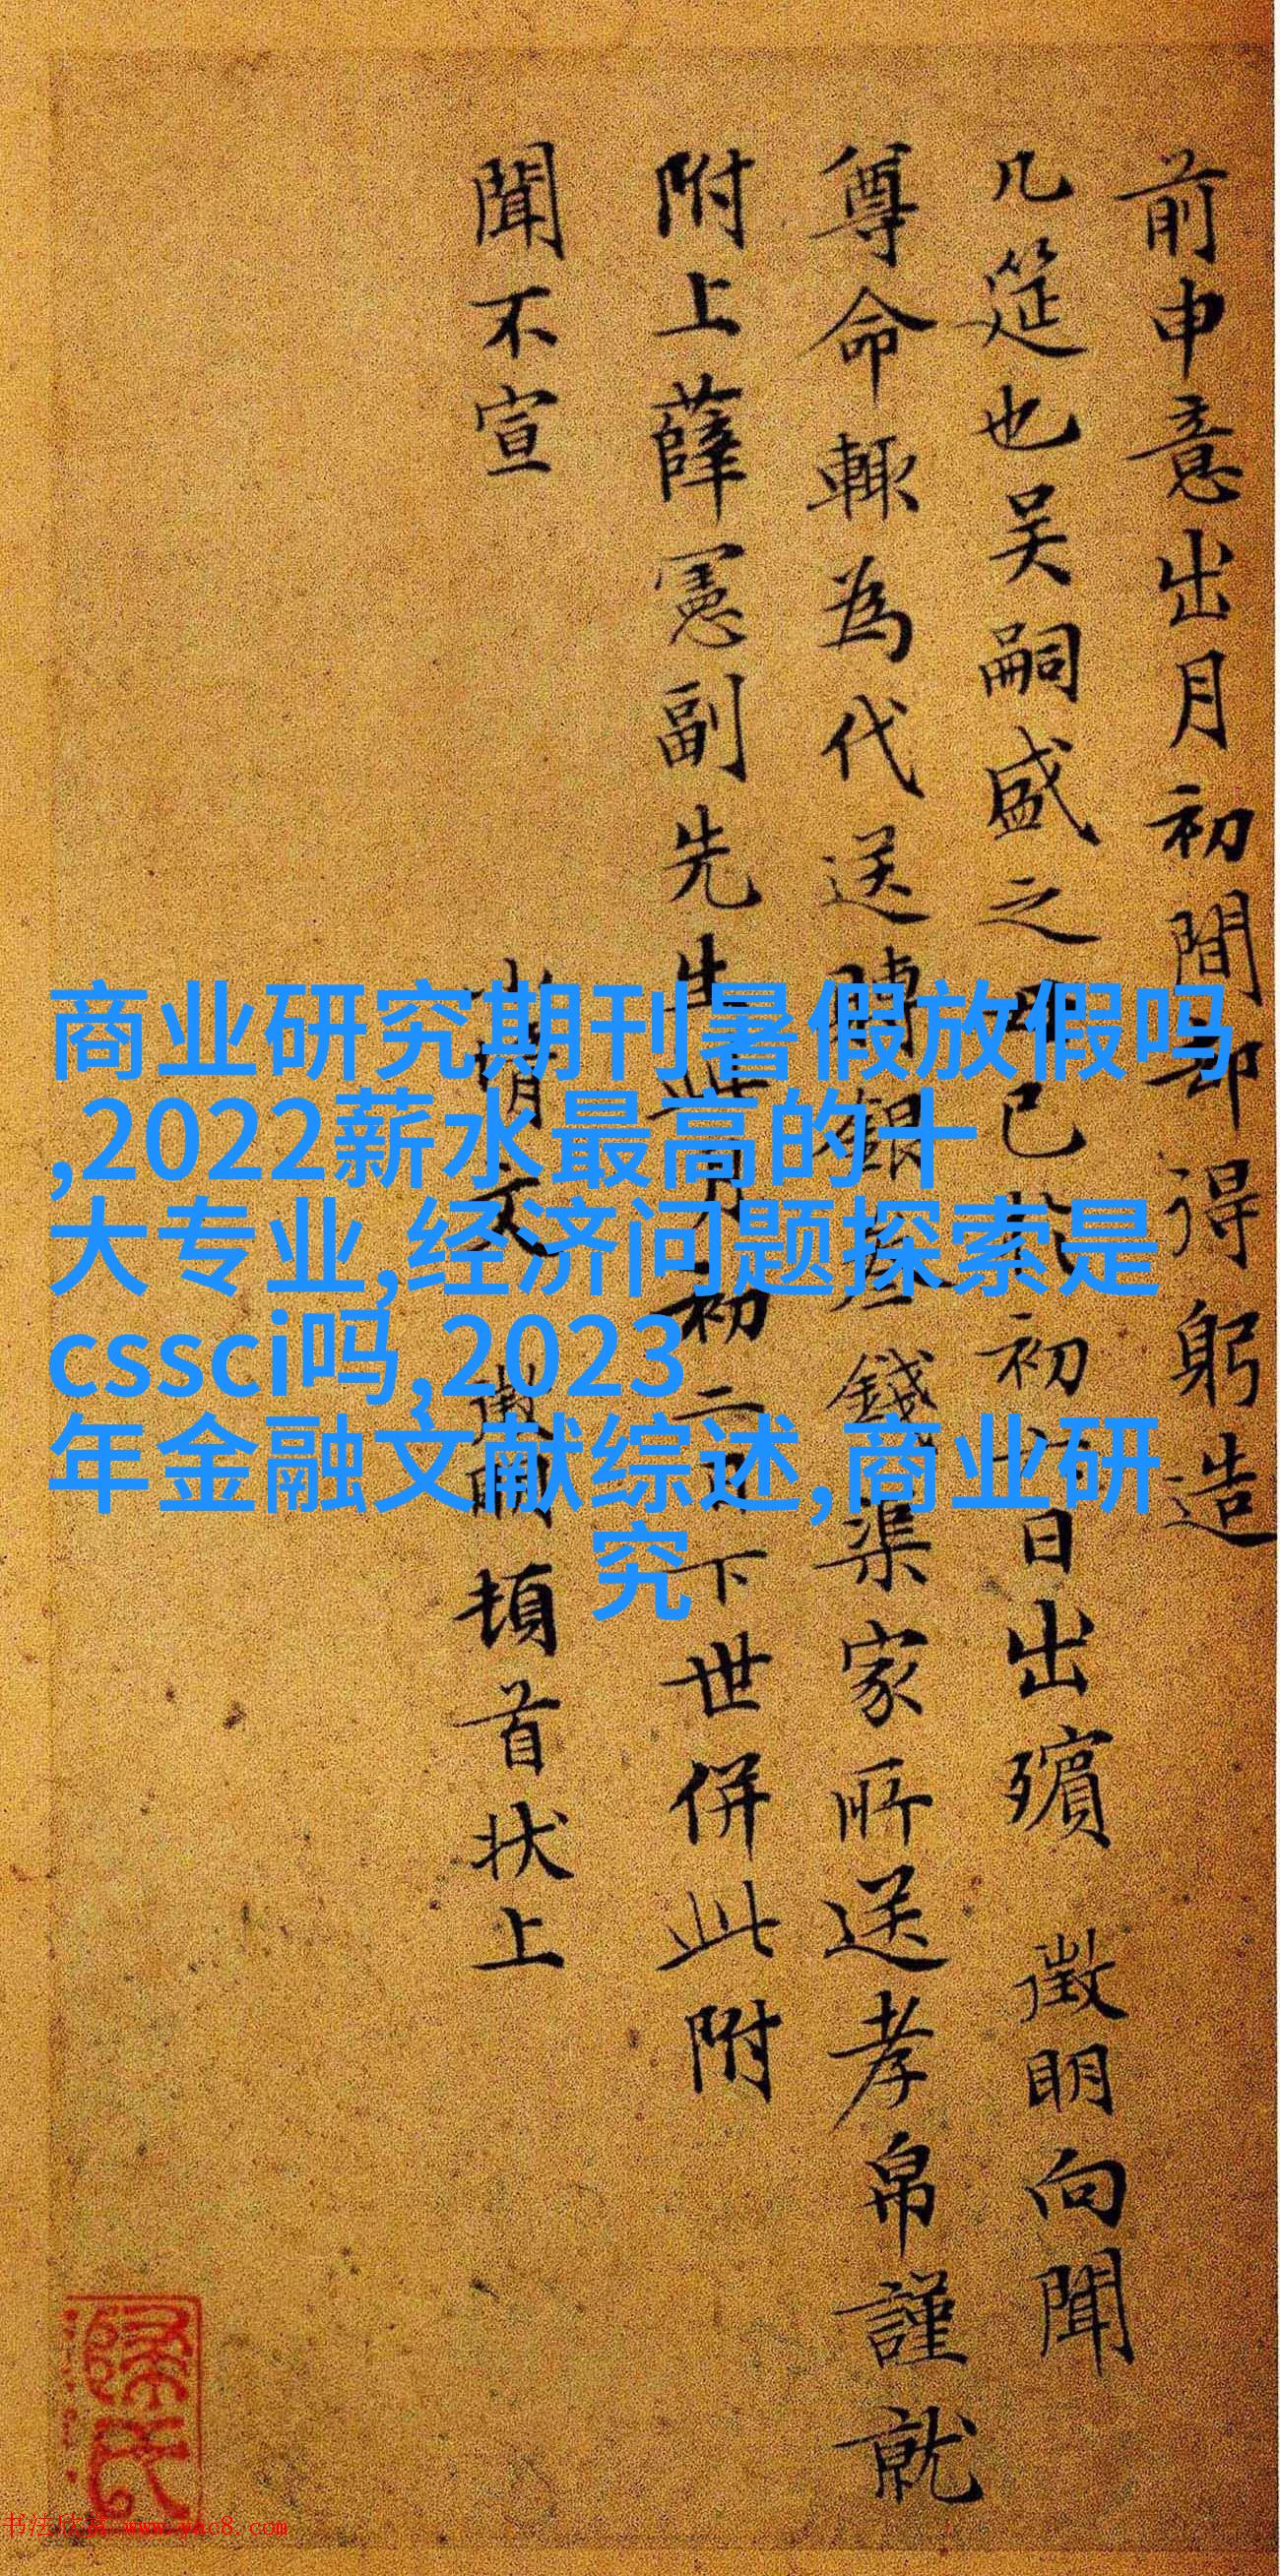 前申意出月初間却得躬造
几筵也吴嗣盛之
已於初
日出殯 徵明向聞
尊命輒為代送
錢渠家所送孝帛謹就
附上薛憲副先生
初二日下世併此附
聞不宣
頓首状上
商业研究期刊暑假放假吗
,2022薪水最高的十
大专业,经济问题探索是
cssci吗,2023
年金融文献综述,商业研
究
书法欣赏 www.yac8.com